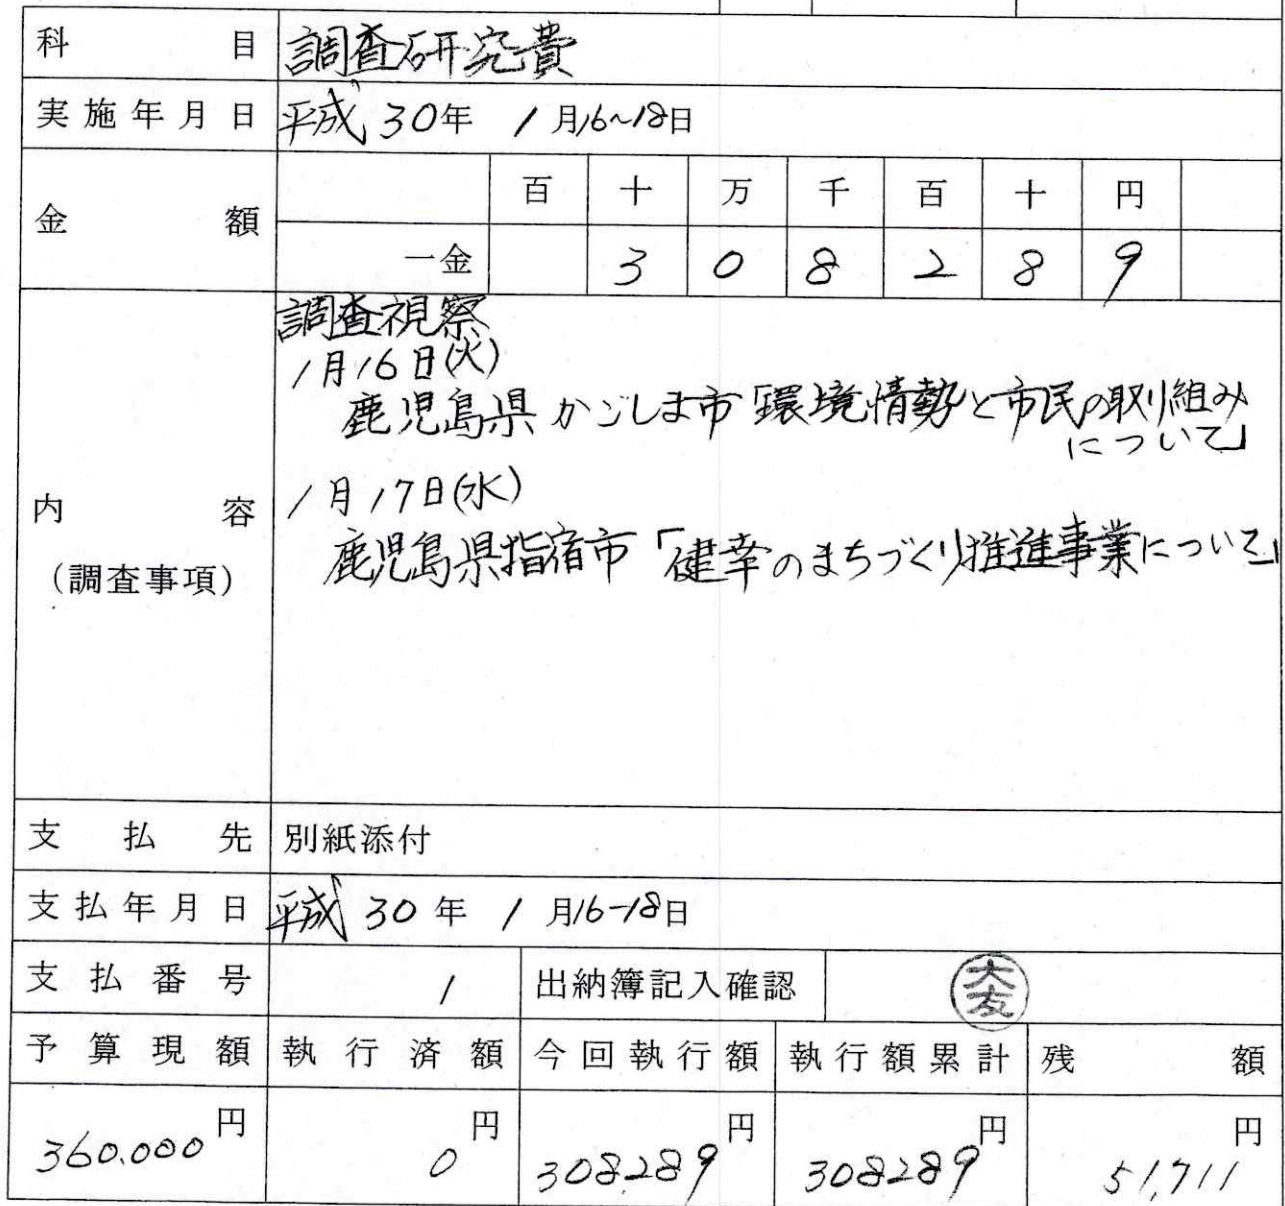 科目 調査研究費
実施年月日 平成30年 1月16~18日
金額 百 十 万 千 百 十 円
一金 3 0 8 2 8 9
調査視察
1月16日(火)
鹿児島県かごしま市「環境情勢と市民の取り組み
について」
1月17日(水)
内容
鹿児島県指宿市「健幸のまちづくり推進事業について」
(調査事項)
支払先 別紙添付
支払年月日 平成30年 1月16-18日
支払番号 1 出納簿記入確認 大友
予算現額 執行済額 今回執行額 執行額累計 残額
360.000円 0円 308.289円 308289円 51,711円